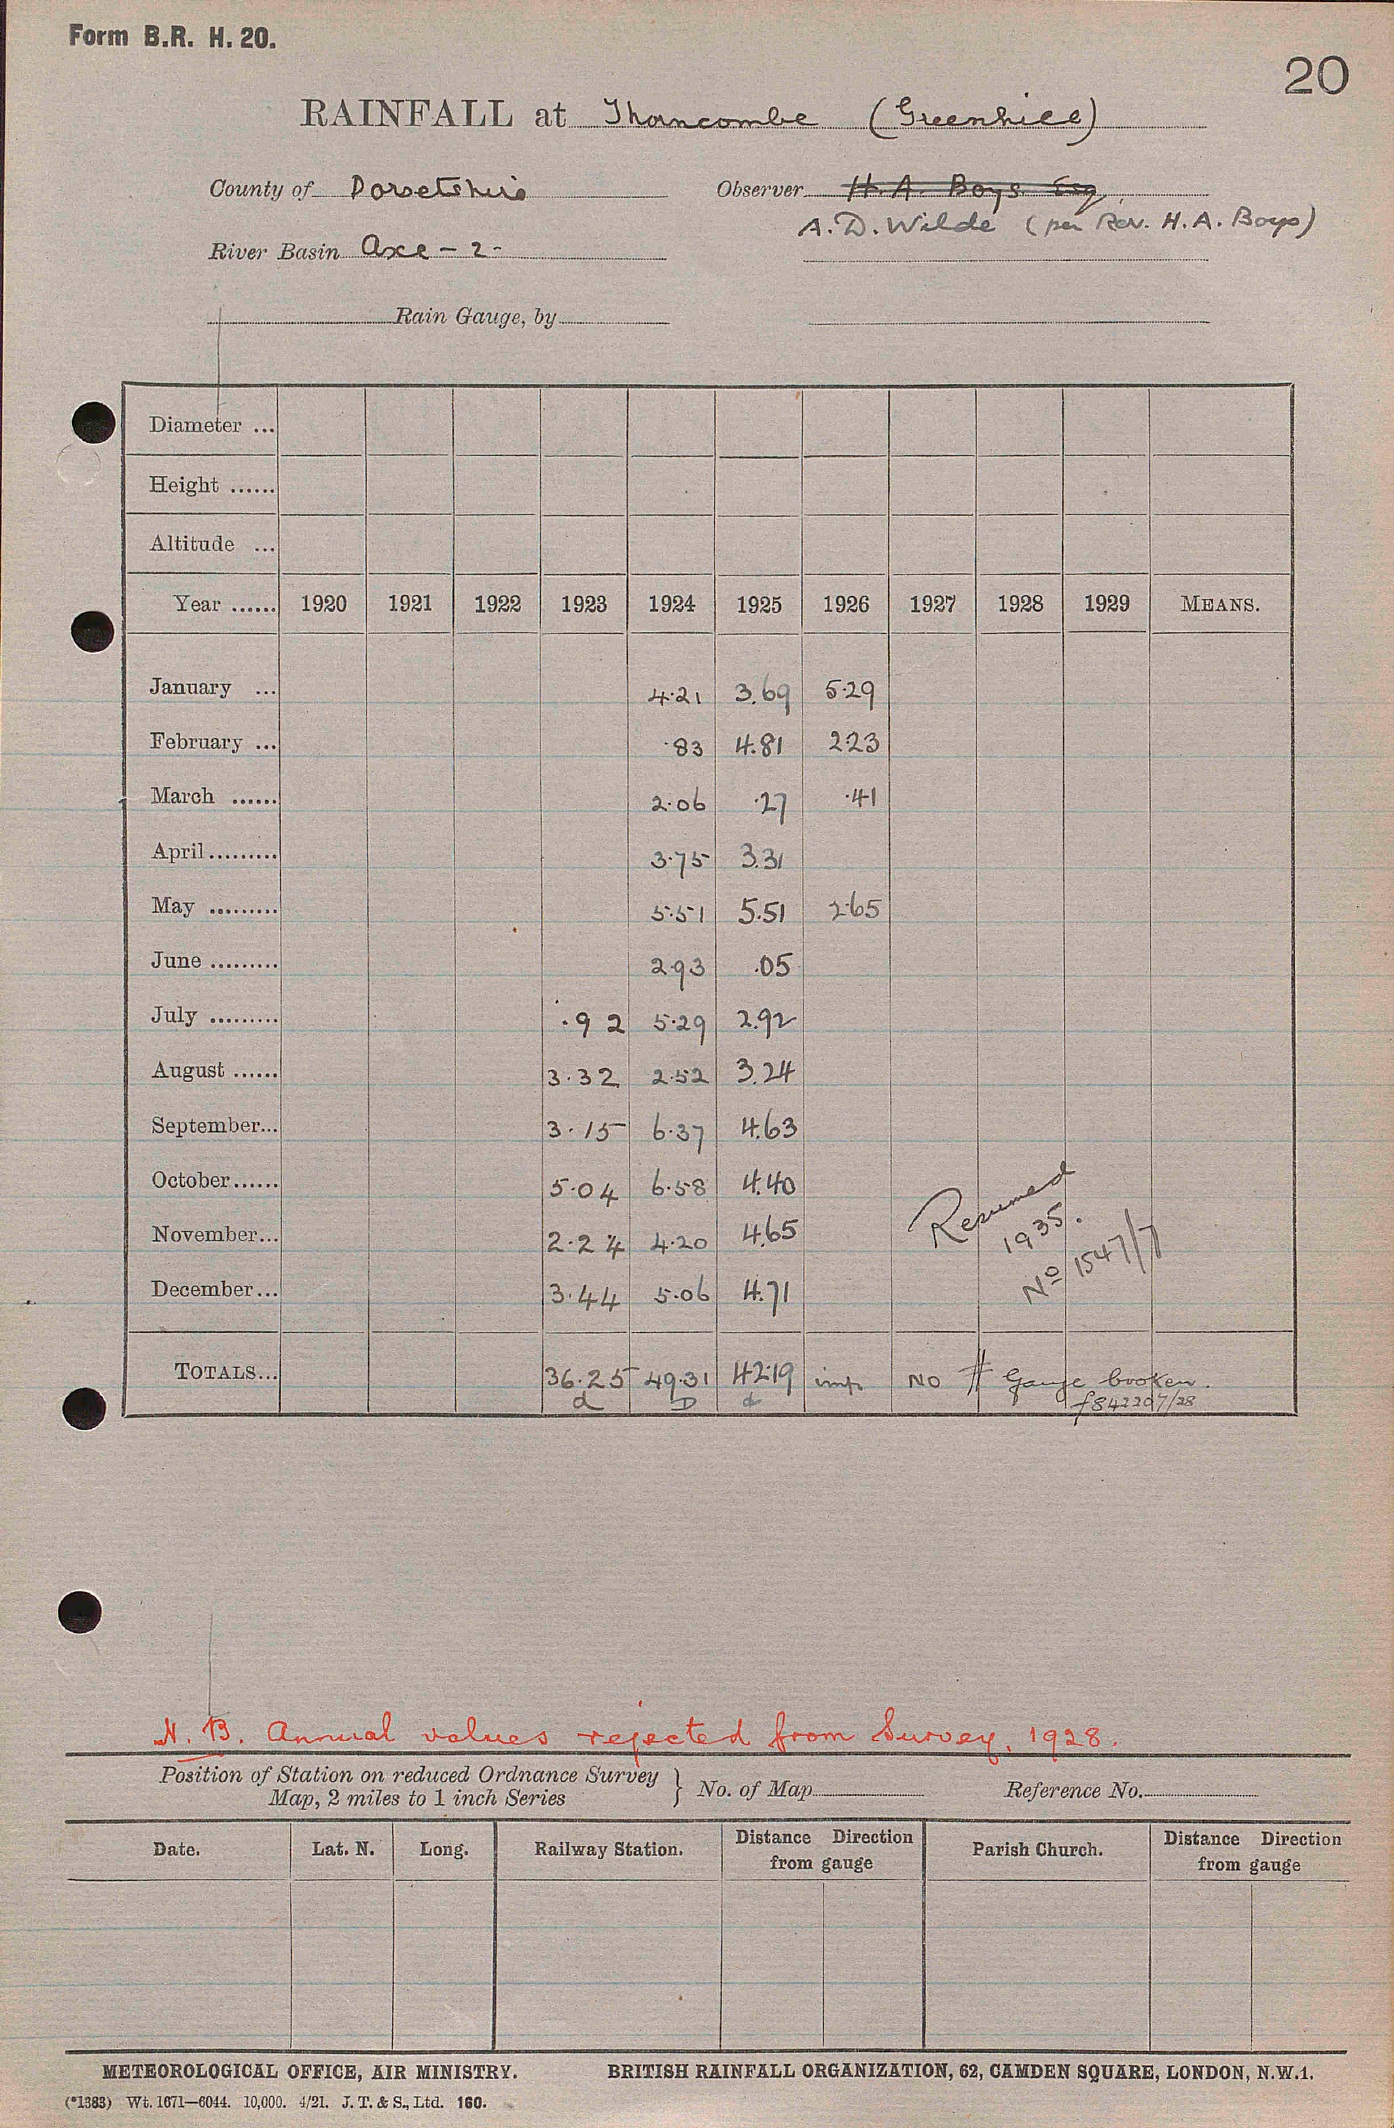 Form B.R. H. 20.
20
RAINFALL at Thorncombe (Greenhill)
County of Dorsetshire Observer H. A. Boys Esq.
A. D. Wilde (per Rev. H. A. Boys)
River Basin Axe - 2 -
Rain Gauge, by
Diameter ...
Height ......
Altitude ...
Year ...... 1920 1921 1922 1923 1924 1925 1926 1927 1928 1929 MEANS.
January ... 4.21 3.69 5.29
February ... .83 4.81 2.23
March ...... 2.06 .27 .41
April......... 3.75 3.31
May ......... 5.51 5.51 2.65
June ......... 2.93 .05
July ......... .92 5.29 2.92
August ...... 3.32 2.52 3.24
September... 3.15 6.37 4.63
October...... 5.04 6.58 4.40
November... 2.24 4.20 4.65
December... 3.44 5.06 4.71
Resumed
1935.
No 1547/7
TOTALS... 36.25 49.31 42.19 imp NO # Gauge broken.
d D d f842207/28
N.B. Annual values rejected from Survey, 1928.
Position of Station on reduced Ordnance Survey
Map, 2 miles to 1 inch Series } No. of Map Reference No.
Date. Lat. N. Long. Railway Station. Distance Direction from gauge Parish Church. Distance Direction from gauge
METEOROLOGICAL OFFICE, AIR MINISTRY. BRITISH RAINFALL ORGANIZATION, 62, CAMDEN SQUARE, LONDON, N.W.1.
(*1383) Wt. 1671—6044. 10,000. 4/21. J. T. & S., Ltd. 160.